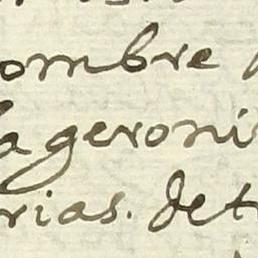 ombre
a geroni
rias. det